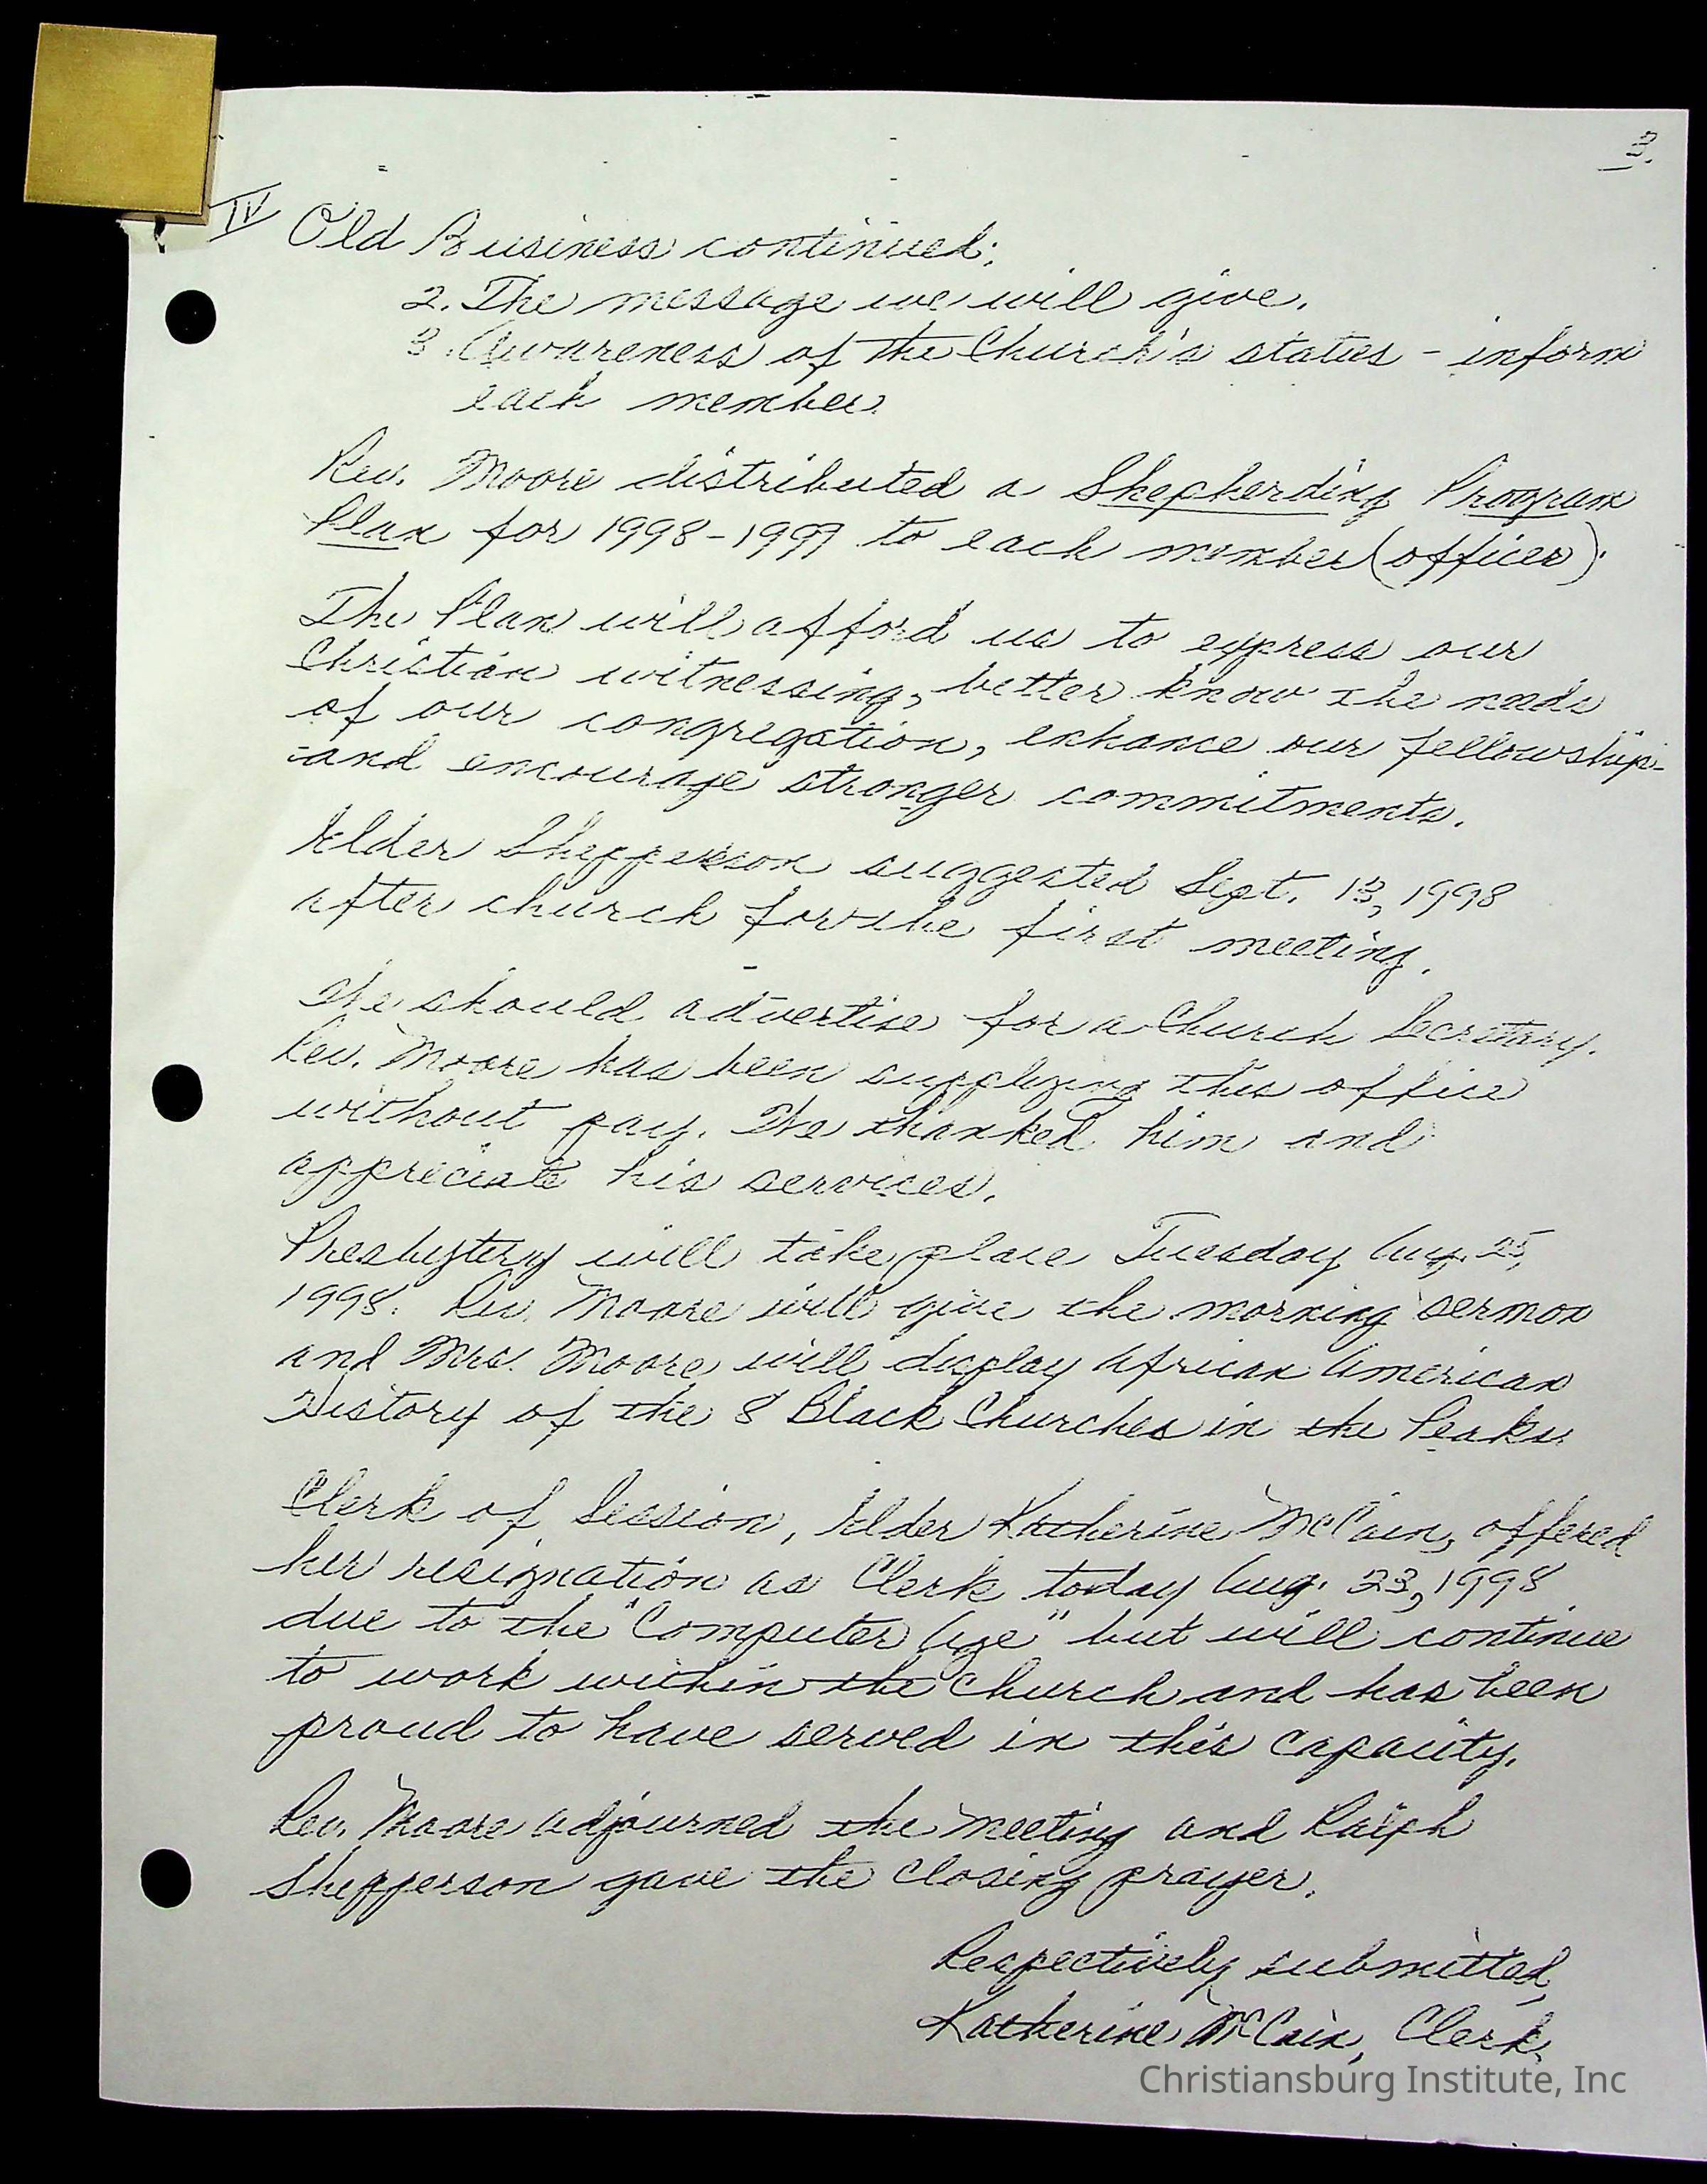 3.
IV Old Business continued:
2. The message we will give.
3. Awareness of the Church's status - inform
each member.
Rev. Moore distributed a Shepherding Program
Plan for 1998-1999 to each member (officer).
The Plan will afford us to express our
Christian witnessing, better know the needs
of our congregation, enhance our fellowship-
and encourage stronger commitments.
Elder Shepperson suggested Sept. 13, 1998
after church for the first meeting.
We should advertise for a Church Secretary.
Rev. Moore has been supplying this office
without pay. We thanked him and
appreciate his services.
Presbytery will take place Tuesday Aug. 25,
1998. Rev. Moore will give the morning sermon
and Mrs. Moore will display African American
History of the 8 Black Churches in the Peaks.
Clerk of Session, Elder Katherine McCain, offered
her resignation as Clerk today Aug. 23, 1998
due to the "Computer Age" but will continue
to work within the Church and has been
proud to have served in this capacity.
Rev. Moore adjourned the meeting and Ralph
Shepperson gave the closing prayer.
Respectively submitted,
Katherine McCain, Clerk
Christiansburg Institute, Inc